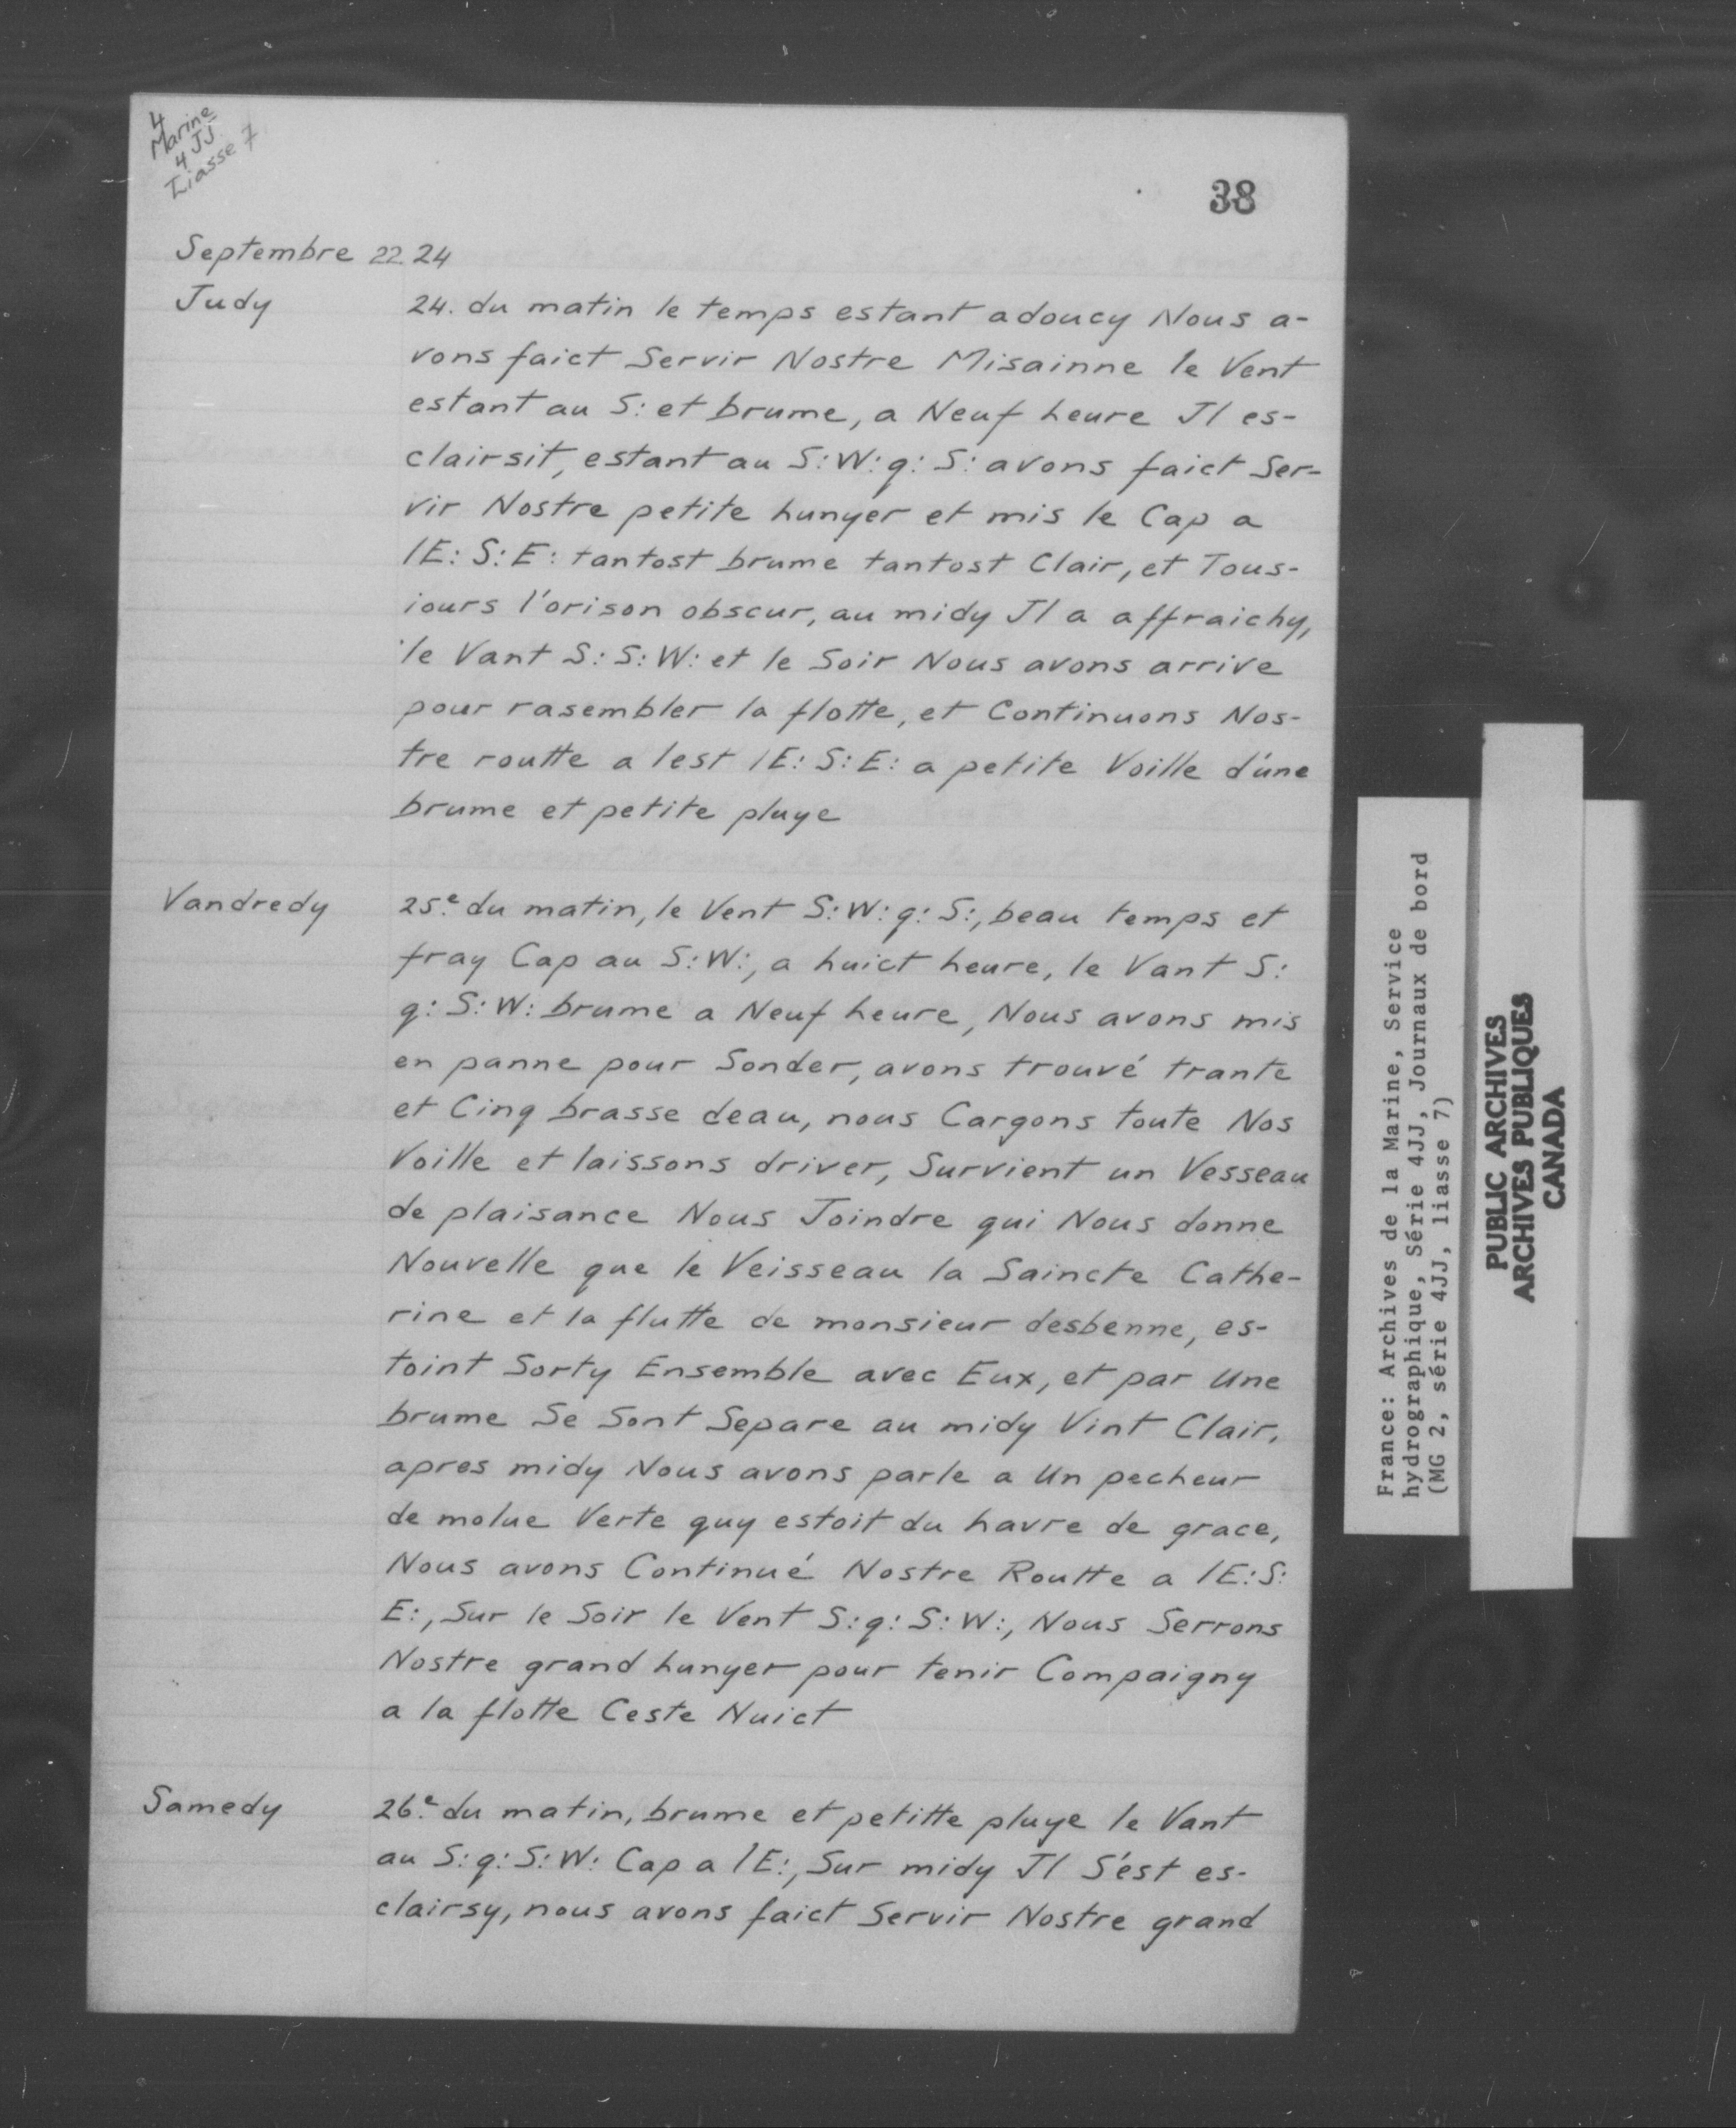 4
Marine
4 JJ
Liasse 7
38
Septembre 22 24
Judy
24. du matin le temps estant adoucy Nous a-
vons faict Servir Nostre Misainne le Vent
estant au S: et brume, a Neuf heure Jl es-
clairsit, estant au S:W:q:S: avons faict Ser-
vir Nostre petite hunyer et mis le Cap a
lE:S:E: tantost brume tantost Clair, et Tous-
iours l'orison obscur, au midy Jl a affraichy,
le Vant S:S:W: et le Soir Nous avons arrive
pour rasembler la flotte, et Continuons Nos-
tre routte a lest lE:S:E: a petite Voille d'une
brume et petite pluye
Vandredy
25.e du matin, le Vent S:W:q:S:, beau temps et
fray Cap au S:W:, a huict heure, le Vant S:
q:S:W: brume a Neuf heure, Nous avons mis
en panne pour Sonder, avons trouvé trante
et Cinq brasse deau, nous Cargons toute Nos
Voille et laissons driver, Survient un Vesseau
de plaisance Nous Joindre qui Nous donne
Nouvelle que le Veisseau la Saincte Cathe-
rine et la flutte de monsieur desbenne, es-
toint Sorty Ensemble avec Eux, et par Une
brume Se Sont Separe au midy Vint Clair,
apres midy Nous avons parle a Un pecheur
de molue Verte quy estoit du havre de grace,
Nous avons Continué Nostre Routte a lE:S:
E:, Sur le Soir le Vent S:q:S:W:, Nous Serrons
Nostre grand hunyer pour tenir Compaigny
a la flotte Ceste Nuict
Samedy
26.e du matin, brume et petitte pluye le Vant
au S:q:S:W: Cap a lE:, Sur midy Jl S'est es-
clairsy, nous avons faict Servir Nostre grand
France: Archives de la Marine, Service
hydrographique, Série 4JJ, Journaux de bord
(MG 2, série 4JJ, liasse 7)
PUBLIC ARCHIVES
ARCHIVES PUBLIQUES
CANADA